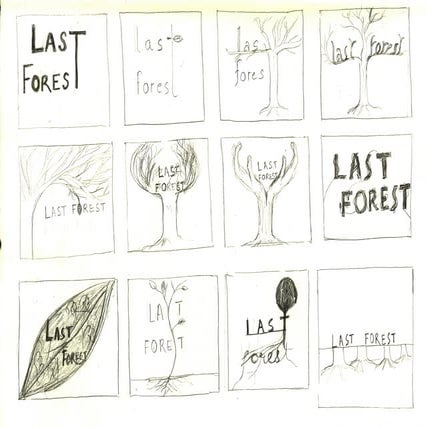 LAST
FOREST
last
forest
las
fores
last forest
LAST FOREST
LAST
FOREST
LAST
FOREST
LAST
FOREST
LAST
FOREST
LA T
FORE T
LAST
fores
LAST FOREST